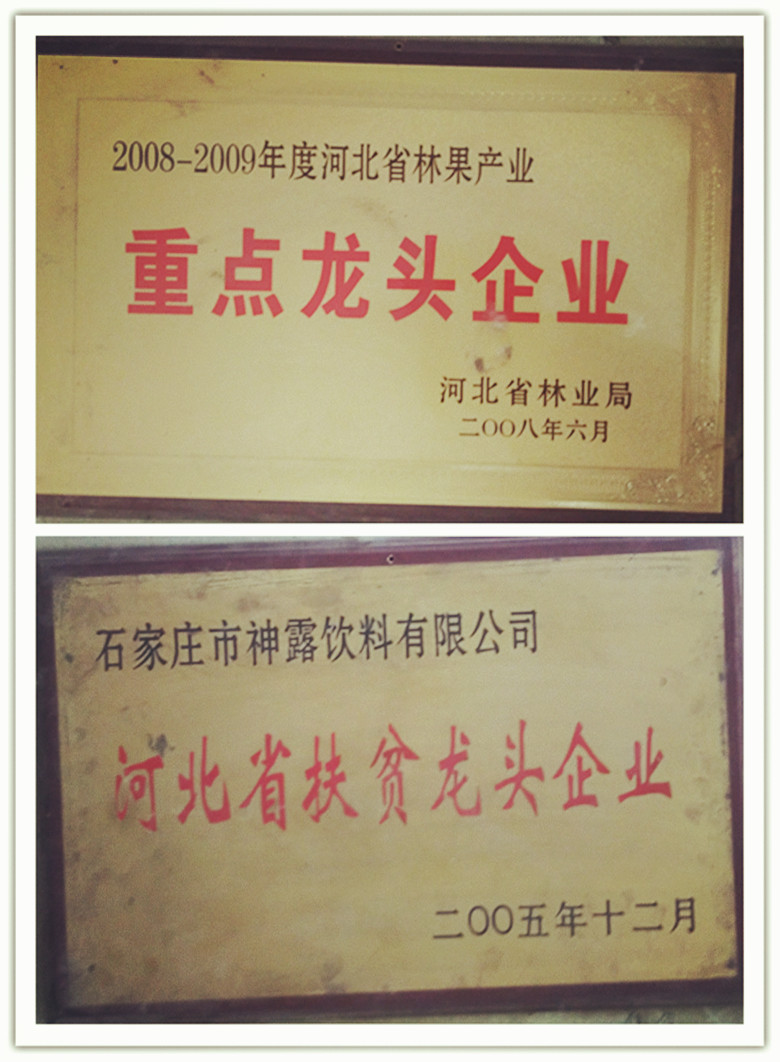 2008-2009年度河北省林果产业
重点龙头企业
河北省林业局
二OO八年六月
石家庄市神露饮料有限公司
河北省扶贫龙头企业
二OO五年十二月